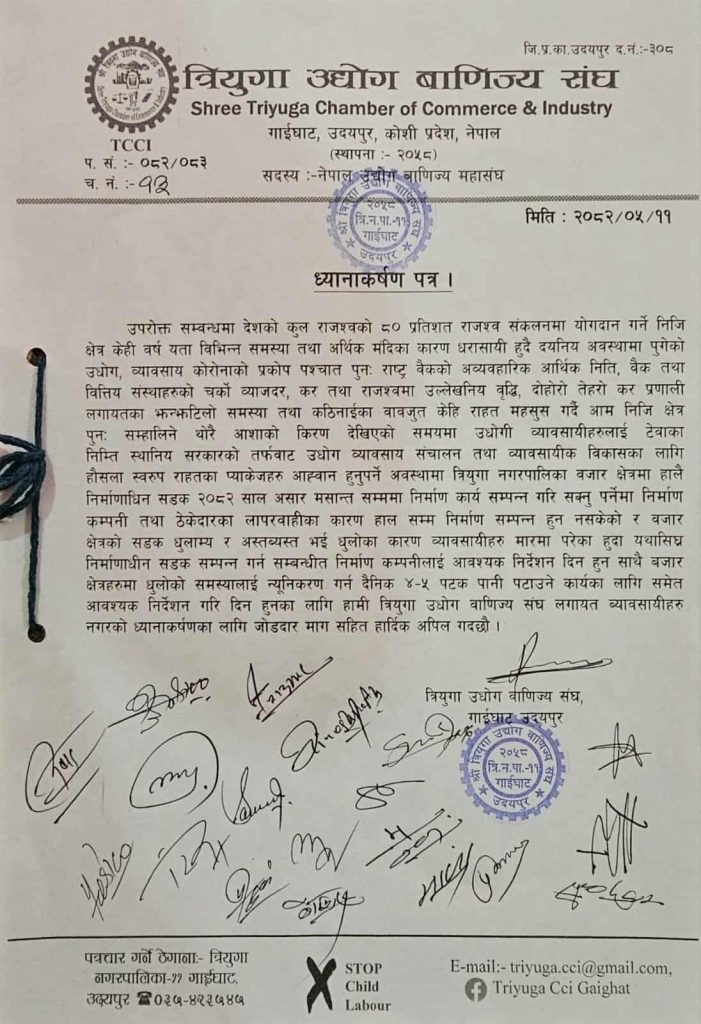 जि.प्र.का.उदयपुर द.नं.:-३०८
त्रियुगा उद्योग बाणिज्य संघ
Shree Triyuga Chamber of Commerce & Industry
TCCI
गाईघाट, उदयपुर, कोशी प्रदेश, नेपाल
(स्थापना :- २०५८)
प. सं. :- ०८२/०८३
सदस्य :-नेपाल उद्योग बाणिज्य महासंघ
च. नं. :- १३
श्री त्रियुगा उद्योग वाणिज्य संघ
२०५८
त्रि.न.पा.-११
गाईघाट
उदयपुर
मिति : २०८२/०५/११
ध्यानाकर्षण पत्र ।
उपरोक्त सम्वन्धमा देशको कुल राजश्वको ८० प्रतिशत राजश्व संकलनमा योगदान गर्ने निजि
क्षेत्र केही वर्ष यता विभिन्न समस्या तथा अर्थिक मंदिका कारण धरासायी हुदै दयनिय अवस्थामा पुगेको
उधोग, व्यावसाय कोरोनाको प्रकोप पश्चात पुनः राष्ट्र वैकको अव्यवहारिक आर्थिक निति, वैक तथा
वित्तिय संस्थाहरुको चर्को व्याजदर, कर तथा राजश्वमा उल्लेखनिय वृद्धि, दोहोरो तेहरो कर प्रणाली
लगायतका झन्झटिलो समस्या तथा कठिनाईका बावजुत केहि राहत महसुस गर्दै आम निजि क्षेत्र
पुनः सम्हालिने थोरै आशाको किरण देखिएको समयमा उधोगी व्यावसायीहरुलाई टेवाका
निम्ति स्थानिय सरकारको तर्फवाट उधोग व्यावसाय संचालन तथा व्यावसायीक विकासका लागि
हौसला स्वरुप राहतका प्याकेजहरु आह्वान हुनुपर्ने अवस्थामा त्रियुगा नगरपालिका वजार क्षेत्रमा हालै
निर्माणाधिन सडक २०८२ साल असार मसान्त सम्ममा निर्माण कार्य सम्पन्न गरि सक्नु पर्नेमा निर्माण
कम्पनी तथा ठेकेदारका लापरवाहीका कारण हाल सम्म निर्माण सम्पन्न हुन नसकेको र वजार
क्षेत्रको सडक धुलाम्य र अस्तब्यस्त भई धुलोका कारण व्यावसायीहरु मारमा परेका हुदा यथासिघ्र
निर्माणाधीन सडक सम्पन्न गर्न सम्बन्धीत निर्माण कम्पनीलाई आवश्यक निर्देशन दिन हुन साथै बजार
क्षेत्रहरुमा धुलोको समस्यालाई न्यूनिकरण गर्न दैनिक ४-५ पटक पानी पटाउने कार्यका लागि समेत
आवश्यक निर्देशन गरि दिन हुनका लागि हामी त्रियुगा उधोग वाणिज्य संघ लगायत ब्यावसायीहरु
नगरको ध्यानाकर्षणका लागि जोडदार माग सहित हार्दिक अपिल गदछौ ।
त्रियुगा उधोग वाणिज्य संघ,
गाईघाट उदयपुर
श्री त्रियुगा उद्योग वाणिज्य संघ
२०५८
त्रि.न.पा.-११
गाईघाट
उदयपुर
पत्रचार गर्ने ठेगानाः- त्रियुगा
नगरपालिका-११ गाईघाट,
उदयपुर ☎०३५-४२३५४५
STOP
Child
Labour
E-mail:- triyuga.cci@gmail.com,
Triyuga Cci Gaighat